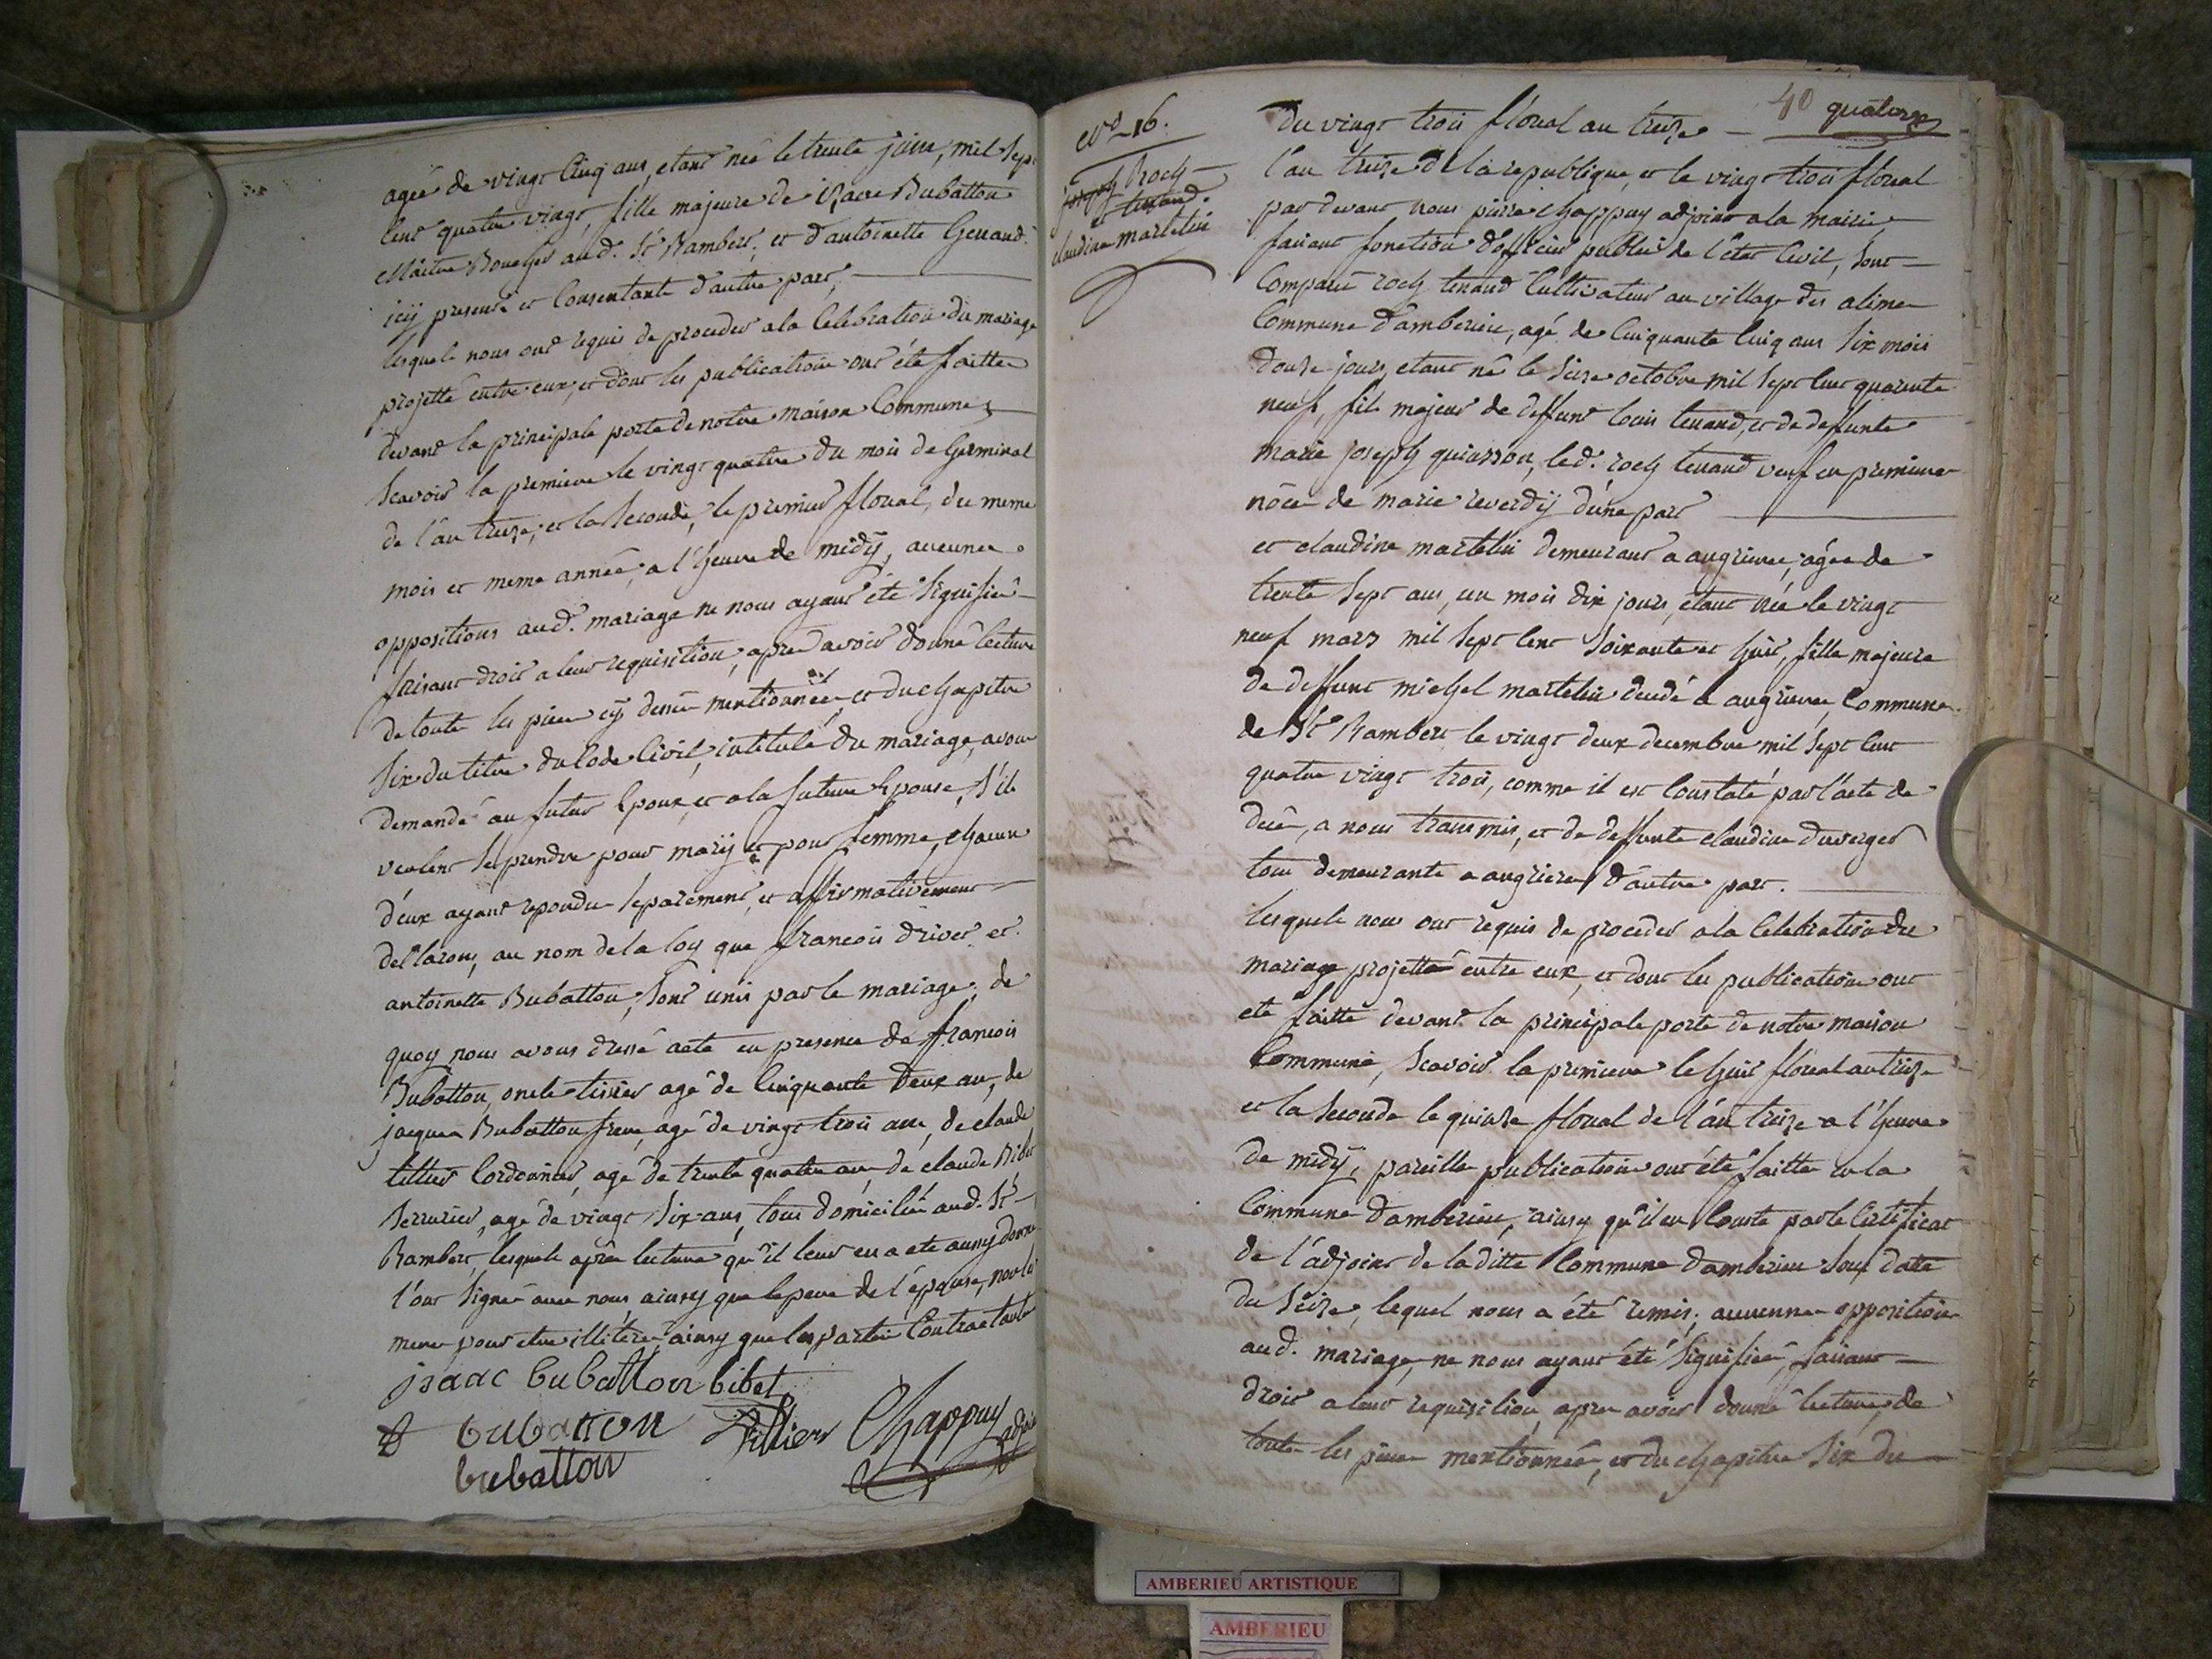 agée de vingt cinq ans, etant née le trente juin, mil sept
cent quatre vingt, fille majeure de isaac Bubatton
Maitre Boucher aud. St Rambert, et d'antoinette Genand
icy presente et consentante d'autre part,
lesquels nous ont requis de proceder a la Celebration du mariage
projetté entre eux, et dont les publications ont été faittes
devant la principale porte de notre maison Commune,
scavoir la premiere le vingt quatre du mois de Germinal
de l'an treize, et la seconde, le premier floreal, du meme
mois et meme année, a l'heure de midÿ, aucunes
oppositions aud. mariage ne nous ayant été signifiée
faisant droit a leur requisition, apres avoir donné lecture
de toute les pieces cÿ dessus mentionnées, et du chapitre
six du titre du Code Civil, intitulé du mariage, avons
demandé au futur Epoux, et a la future Epouse, s'ils
veulent se prendre pour marÿ et pour femme, chacun
d'eux ayant repondu separement, et affirmativement
declarons, au nom de la loy que francois drivet et
antoinette Bubatton, sont unis par le mariage; de
quoy nous avons dressé acte en presence de francois
Bubatton, oncle tissier agé de cinquante deux ans, de
jacques Bubatton frere, agé de vingt trois ans, de claude
tillier Cordonnier, agé de trente quatre ans, de claude Bibet
serrurier, agé de vingt six ans, tous domiciliés aud. St
Rambert, lesquels après lecture qu'il leur en a eté aussy donné
l'ont signé avec nous ainsy que le pere de l'épouse, non la
mere pour etre illitérée, ainsy que les parties Contractantes
isaac bubatton bibet
bubatton Tillier Chappuy adjoint
bubatton
No 16.
joseph Roch
tenand
et
claudine martelin
du vingt trois floreal an treize
40 quatorze
l'an treize de la republique, et le vingt trois floreal
par devant nous pierre chappuy adjoint a la mairie
faisant fonction d'officier public de l'état Civil, sont
Comparu roch tenand Cultivateur au village des alimes
Commune d'amberieu, agé de cinquante cinq ans six mois
douze jours, etant né le seize octobre mil sept cent quarante
neuf, fils majeur de deffunt louis tenand, et de deffunte
marie joseph quinsson, led. roch tenand veuf en premieres
nôces de marie reverdÿ d'une part
et claudine martelin demeurant a angrieres, agée de
trente sept ans, un mois dix jours, étant née le vingt
neuf mars mil sept cent soixante et huit, fille majeure
de deffunt michel martelin decedé a angrieres, Commune
de St Rambert le vingt deux decembre mil sept cent
quatre vingt trois, comme il est Constaté par l'acte de
decès, a nous transmis, et de deffunte claudine duverger
tous demeurante a angrieres d'autre part.
lesquels nous ont requis de proceder a la Celebration du
mariage projetté entre eux, et dont les publications ont
eté faitte devant la principale porte de notre maison
Commune, scavoir la premiere le huit floreal an treize
et la seconde le quinze floreal de l'an treize a l'heure
de midÿ, pareilles publications ont été faittes a la
Commune d'amberieu, ainsy qu'il en Conste par le Certificat
de l'adjoint de laditte Commune d'amberieu sous datte
du seize, lequel nous a été remis; aucunnes oppositions
aud. mariage, ne nous ayant été signifiée, faisant
droit a leur requisition, apres avoir donné lecture, de
toutes les pieces mentionnées, et du chapitre six du
AMBERIEU ARTISTIQUE
AMBERIEU